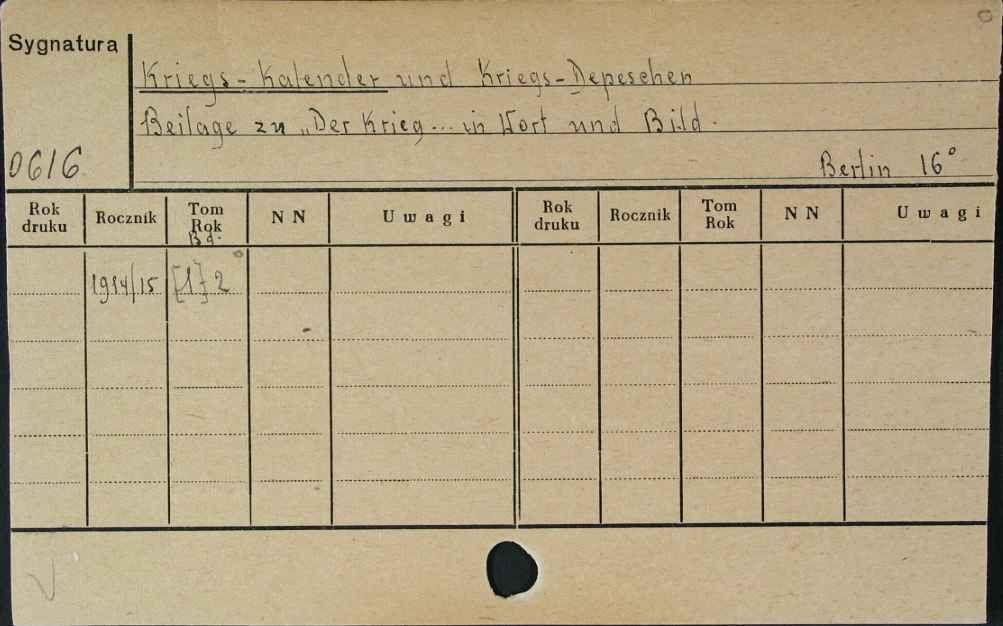 Sygnatura
Kriegs-Kalender und Kriegs-Depeschen
Beilage zu „Der Krieg... in Wort und Bild.
0616
Berlin 16°
Rok druku Rocznik Tom Rok Bd. N N Uwagi Rok druku Rocznik Tom Rok N N Uwagi
1914/15 [1] 2